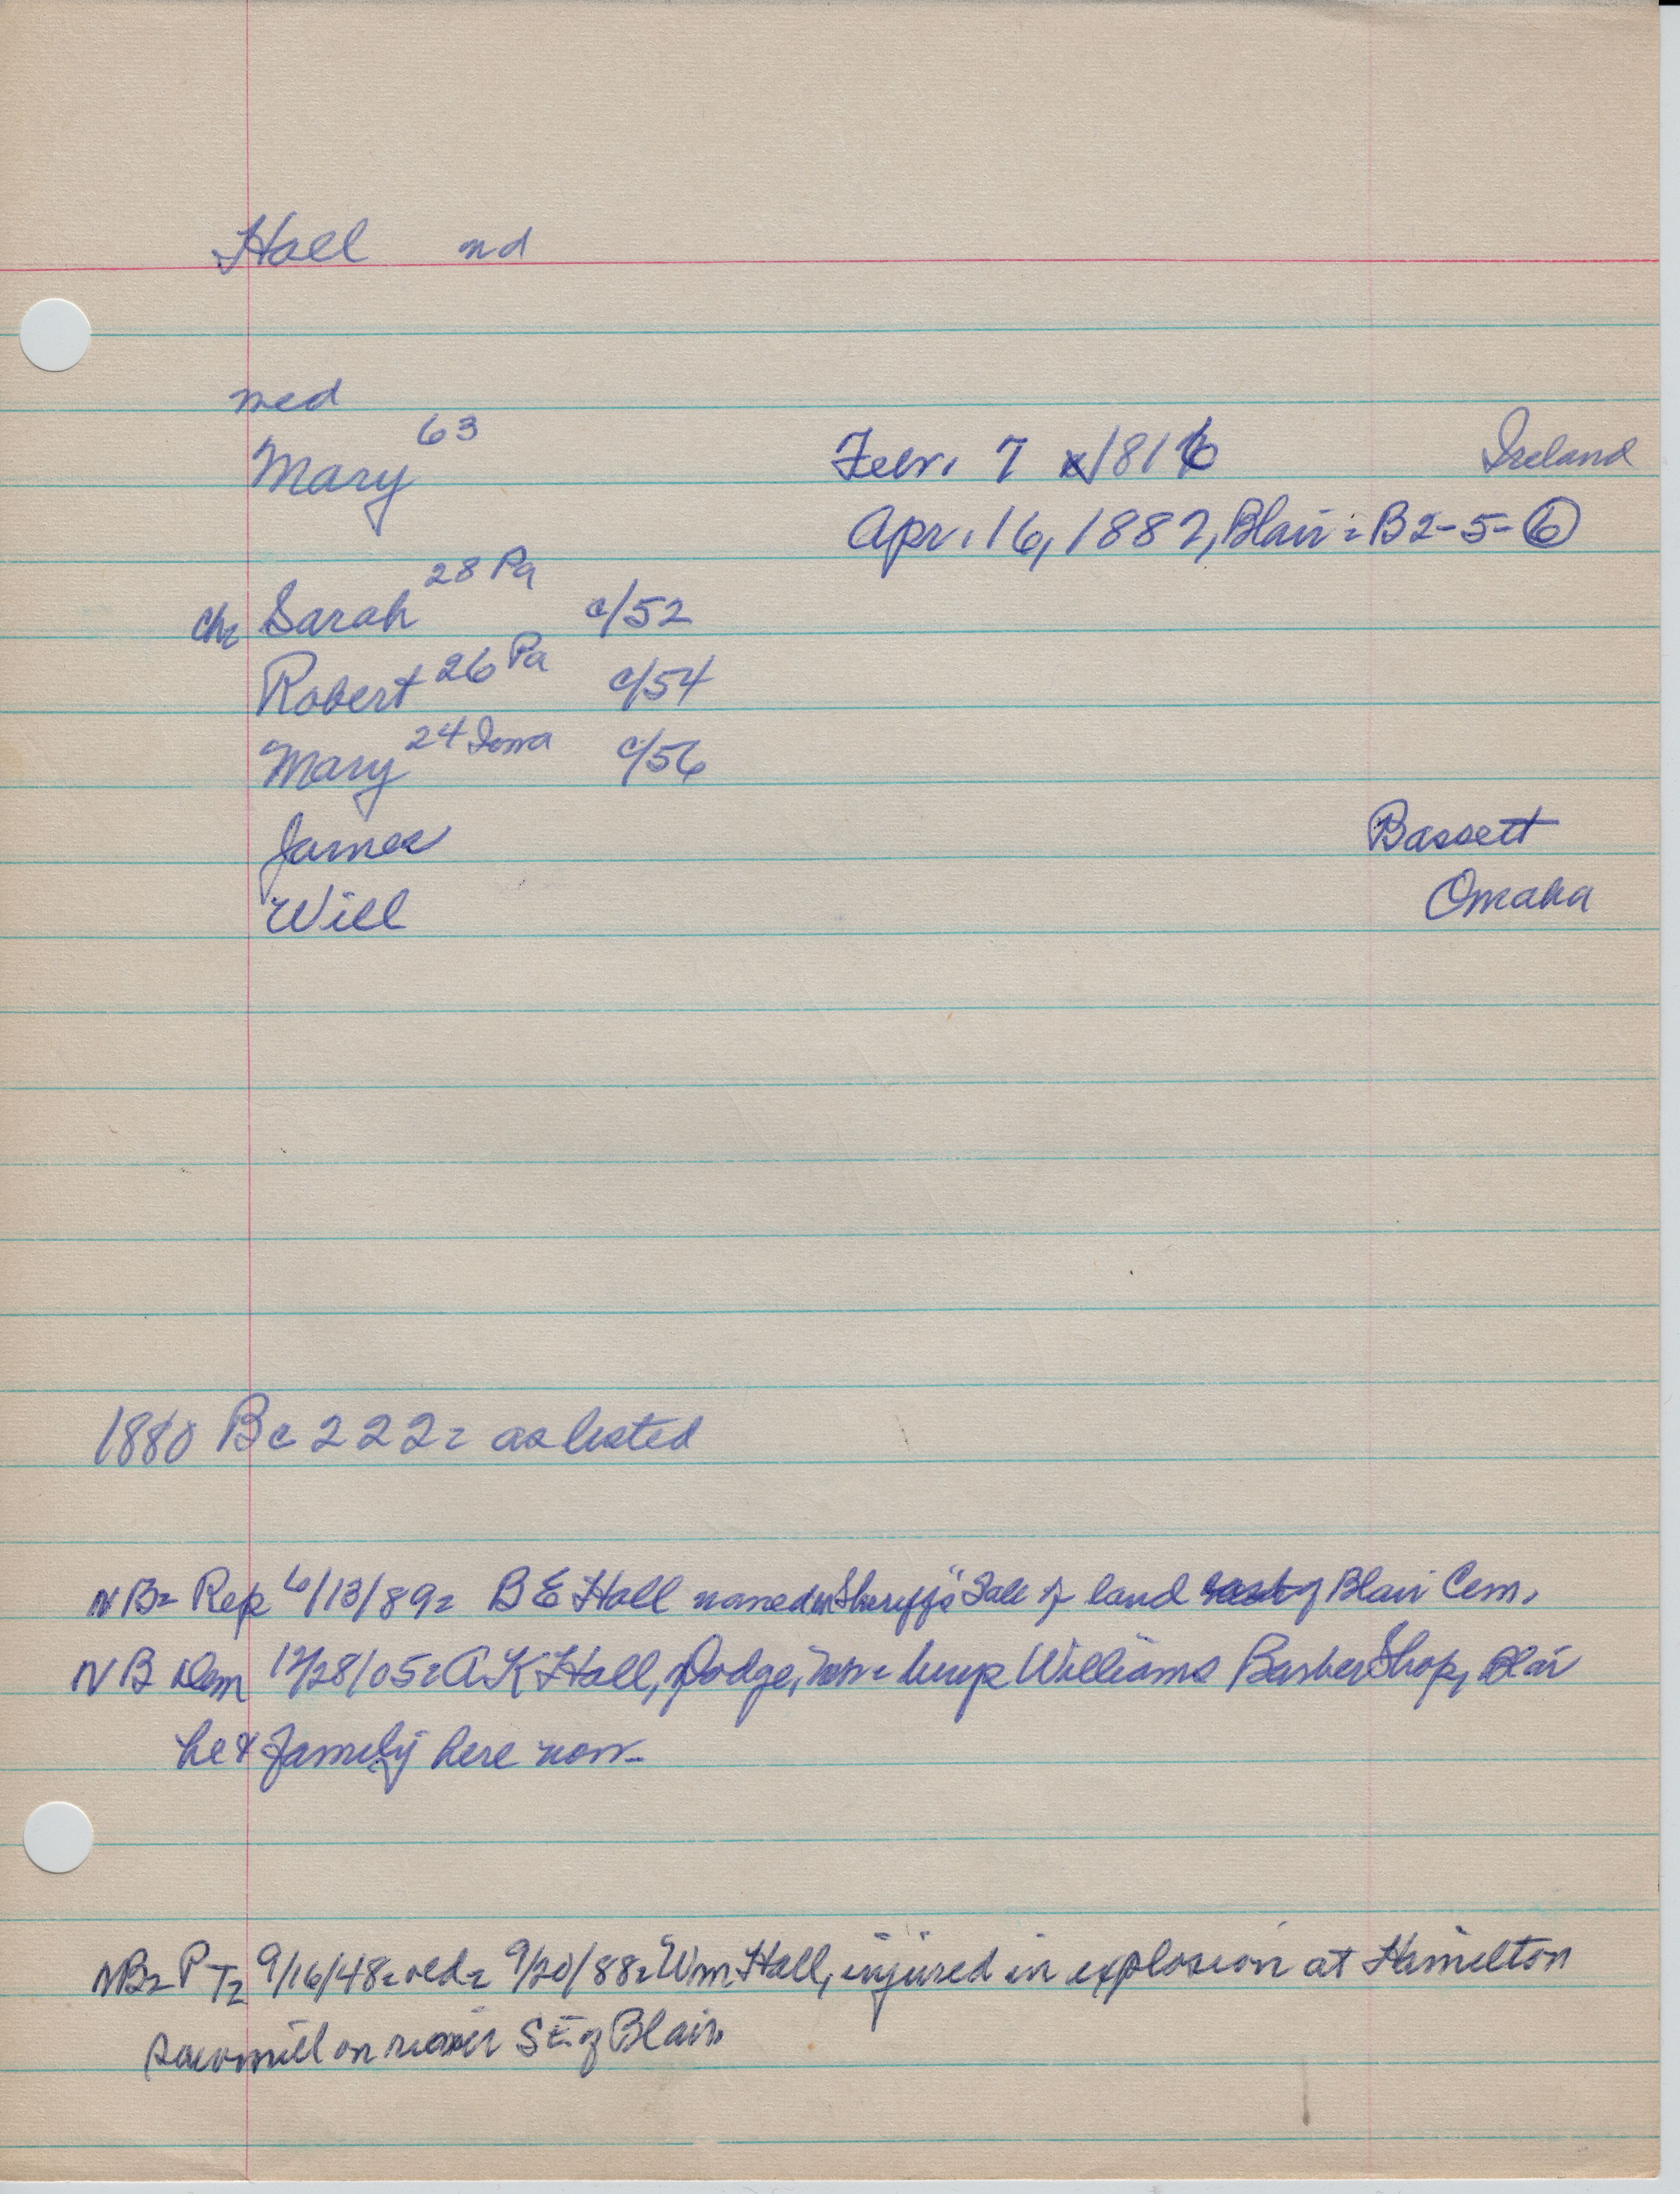 Hall nd
med
Mary 63 Febr. 7 1816 Ireland
Apr. 16, 1882, Blair = B2-5-6
Ch= Sarah 28 Pa c/52
Robert 26 Pa c/54
Mary 24 Iowa c/56
James Bassett
Will Omaha
1880 Bc 222= as listed
NB= Rep 6/13/89= B E Hall named in Sheriff's Sale of land east of Blair Cem.
NB Dem 12/28/05= A K Hall, Dodge, Williams Barber Shop, Blair
he & family here now-
NB= PT= 9/16/48= 9/20/88= Wm. Hall, injured in explosion at Hamilton
sawmill on river SE of Blair.